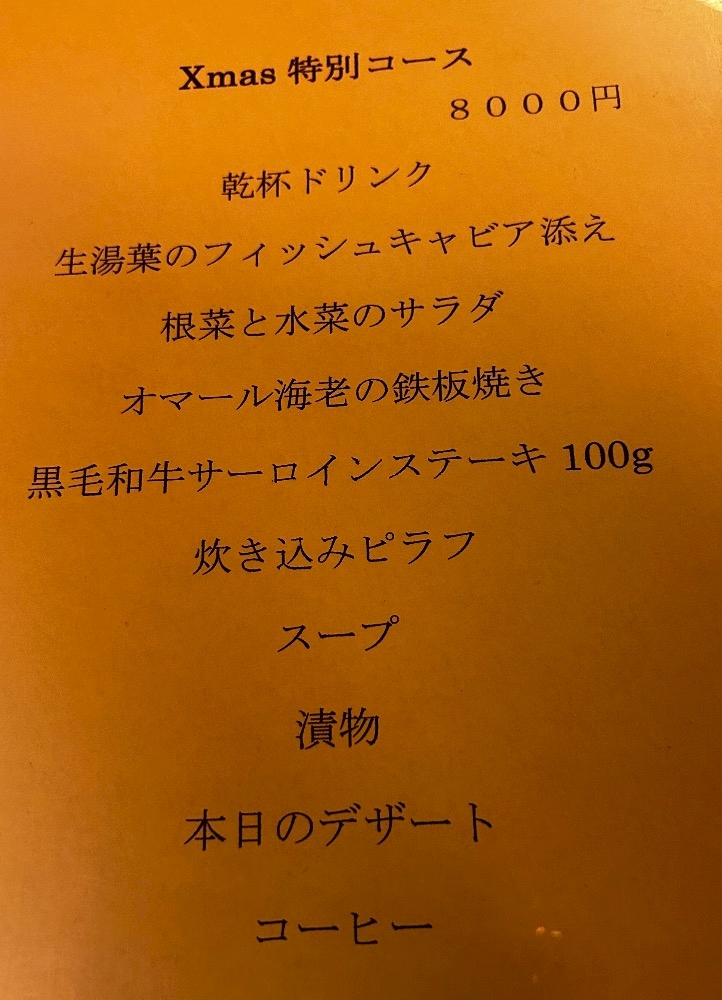 Xmas 特別コース
８０００円
乾杯ドリンク
生湯葉のフィッシュキャビア添え
根菜と水菜のサラダ
オマール海老の鉄板焼き
黒毛和牛サーロインステーキ 100g
炊き込みピラフ
スープ
漬物
本日のデザート
コーヒー